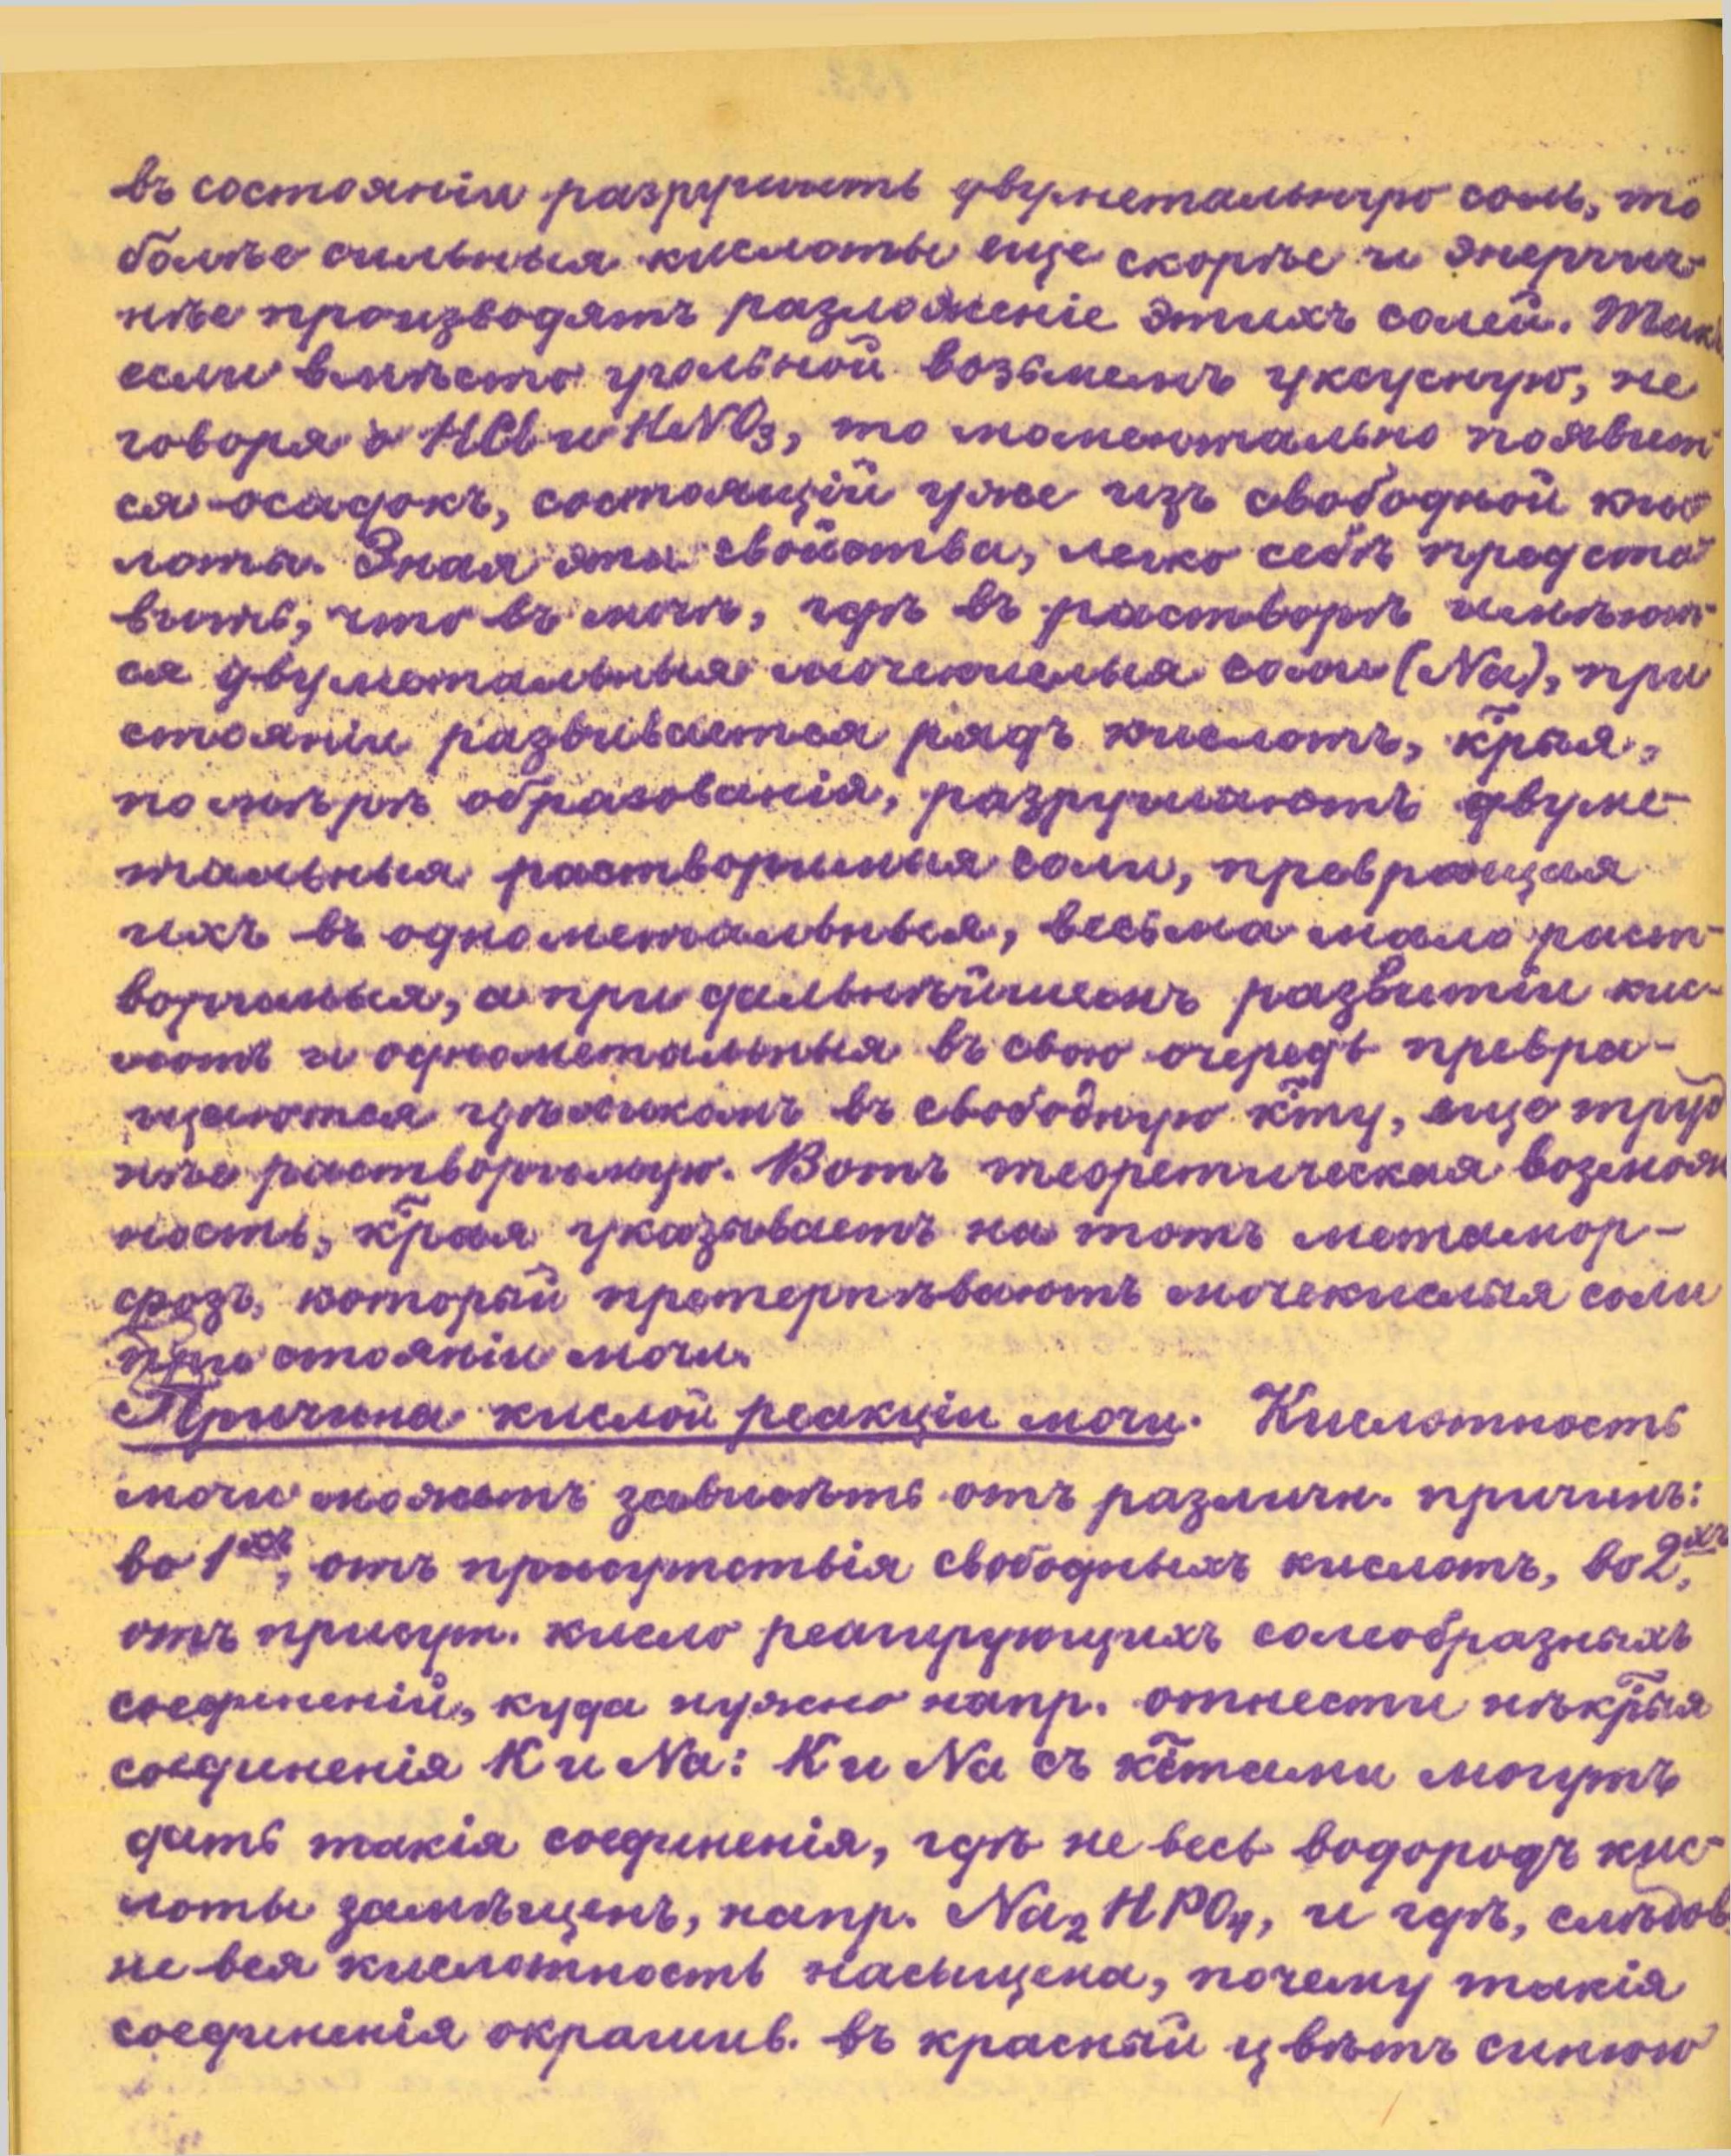 въ состоянiи разрушить двуметальную соль, то
болѣе сильныя кислоты еще скорѣе и энергич-
нѣе производятъ разложенiе этихъ солей. Такъ
если вмѣсто угольной возьмемъ уксусную, не
говоря о HCl и HNO₃, то моментально появит-
ся осадокъ, состоящiй уже изъ свободной кис-
лоты. Зная эти свойства, легко себѣ предста-
вить, что въ мочѣ, гдѣ въ растворѣ имѣют-
ся двуметальныя мочекислыя соли (Na), при
стоянiи развивается рядъ кислотъ, к̃рыя,
по мѣрѣ образованiя, разрушаютъ двуме-
тальныя растворимыя соли, превращая
ихъ въ однометальныя, весьма мало раст-
воримыя, а при дальнѣйшемъ развитiи кис-
лотъ и однометальныя въ свою очередь превра-
щаются цѣликомъ въ свободную к̃ту, еще труд
нѣе растворимую. Вотъ теоретическая возмож
ность, к̃рая указываетъ на тотъ метамор-
фозъ, который претерпѣваютъ мочекислыя соли
при стоянiи мочи.
Причина кислой реакцiи мочи. Кислотность
мочи можетъ зависѣть отъ различн. причинъ:
во 1ыхъ, отъ присутствiя свободныхъ кислотъ, во 2ыхъ,
отъ присут. кисло реагирующихъ солеобразныхъ
соединенiй, куда нужно напр. отнести нѣк̃рыя
соединенiя K и Na: K и Na съ к̃тами могутъ
дать такiя соединенiя, гдѣ не весь водородъ кис-
лоты замѣщенъ, напр. Na₂HPO₄, и гдѣ, слѣдов.
не вся кислотность насыщена, почему такiя
соединенiя окрашив. въ красный цвѣтъ синюю